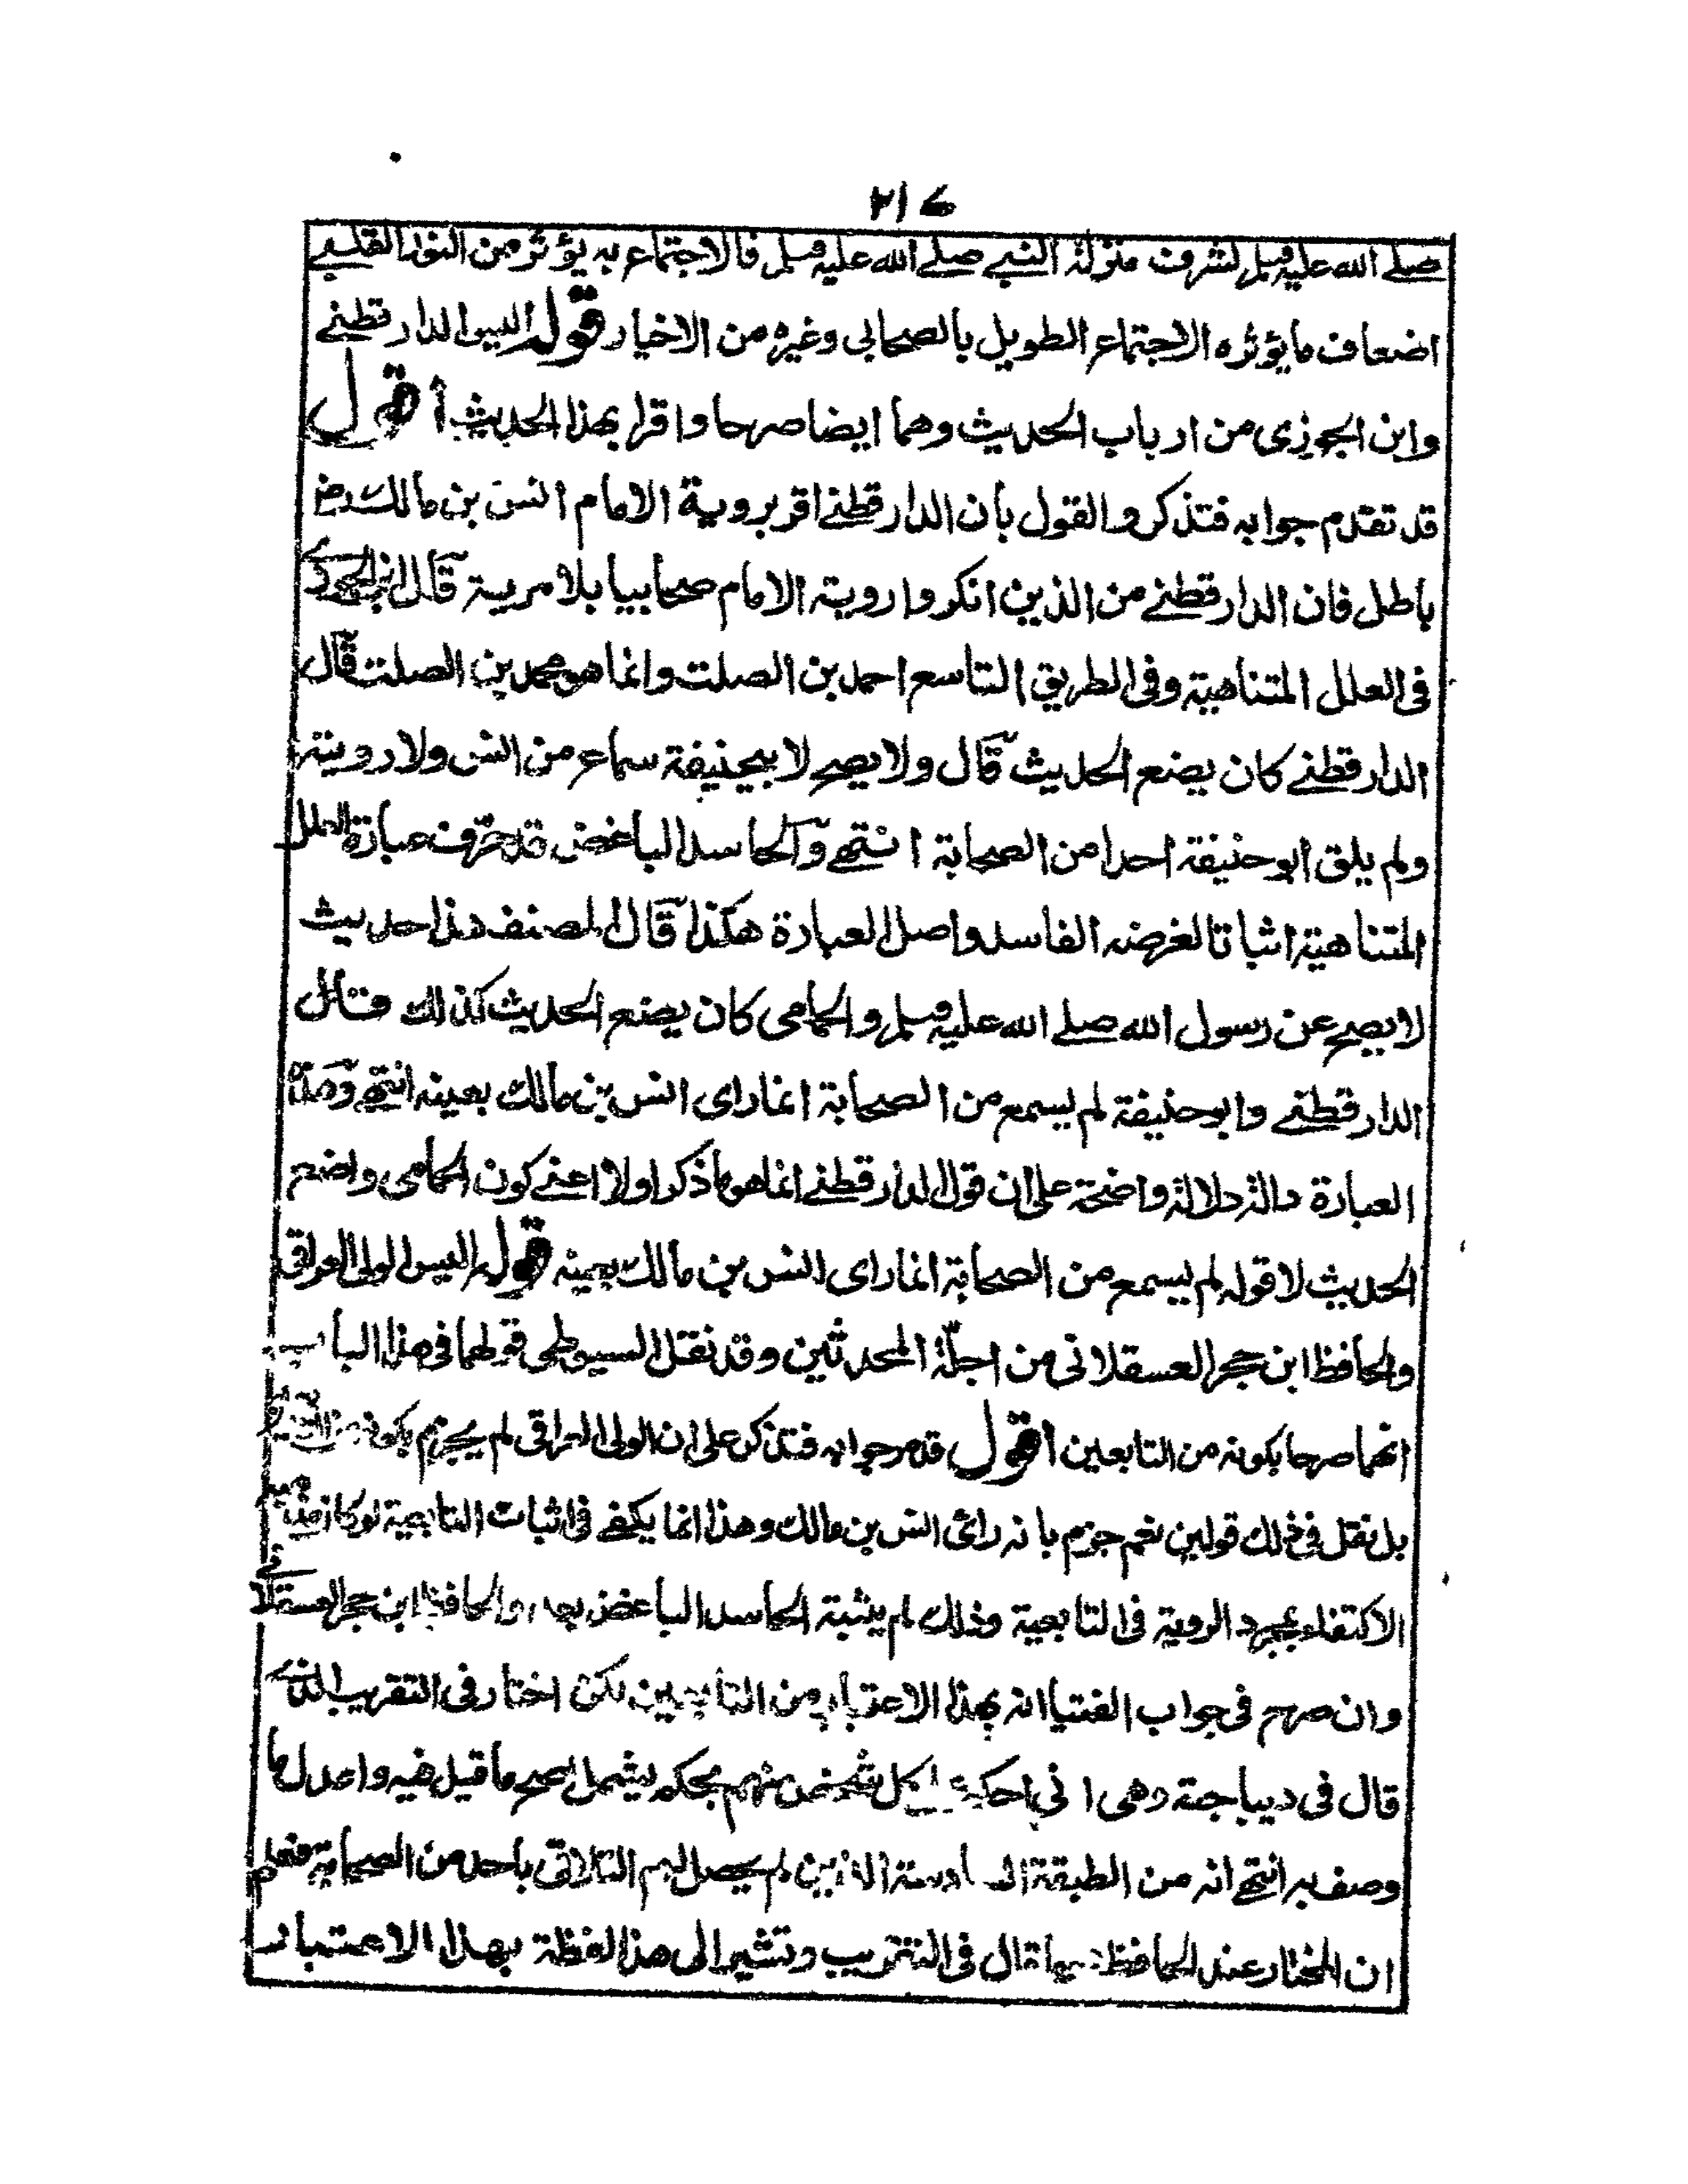 ٢١٤
صلے الله عليه وسلم لشرف منزلة النبے صلے الله عليه وسلم فالاجتماع به يؤثر من النور القلبے
اضعاف ما يؤثره الاجتماع الطويل بالصحابى وغيره من الاخيار قوله اليس الدارقطنے
وابن الجوزى من ارباب الحديث وهما ايضا صرحا واقرا بهذا الحديث أقول
قد تقدم جوابه فتذكر والقول بأن الدارقطنے اقر بروية الامام انس بن مالك رض
باطل فان الدارقطنے من الذين انكروا روية الامام صحابيا بلا مرية قال ابن الجوزے
فى العلل المتناهية وفى الطريق التاسع احمد بن الصلت وانما هو محمد بن الصلت قال
الدارقطنے كان يضع الحديث قال ولا يصح لابيحنيفة سماع من انس ولا روية
ولم يلق ابو حنيفة احدا من الصحابة انتهے والحاسد الباغض قد حرف عبارة العلل
المتناهية اثباتا لغرضه الفاسد واصل العبارة هكذا قال المصنف هذا حديث
لا يصح عن رسول الله صلے الله عليه وسلم والحمامى كان يضع الحديث كذلك قال
الدارقطنے وابو حنيفة لم يسمع من الصحابة انما راى انس بن مالك بعينه انتهے وهذه
العبارة دالة دلالة واضحة على ان قول الدارقطنے انما هو ما ذكر اولا اعنے كون الحمامى واضع
الحديث لا قوله لم يسمع من الصحابة انما راى انس بن مالك بعينه قوله اليس الولى العراقى
والحافظ ابن حجر العسقلانى من اجلّة المحدثين وقد نقل السيوطى قولهما فى هذا الباب
انهما صرحا بكونه من التابعين اقول قد مر جوابه فتذكر على ان الولى العراقى لم يجزم بكونه من
بل نقل فى ذلك قولين نعم جزم بانه رائ انس بن مالك وهذا انما يكفے فى اثبات التابعية لو كان
الاكتفاء بمجرد الروية فى التابعية وذلك لم يثبته الحاسد الباغض بعد والحافظ ابن حجر العسقلانے
وان صرح فى جواب الفتيا انه بهذا الاعتبار من التابعين لكن اختار فى التقريب الذے
قال فى ديباجته وهى انى احكم على كل شخص منهم بحكم يشمل اصح ما قيل فيه واعدل ما
وصف به انتهے انه من الطبقة السادسة الذين لم يحصل لهم التلاقى باحد من الصحابة فعلم
ان المختار عند الحافظ قال فى التقريب وتشير الى هذا لفظة بهذا الاعتبار